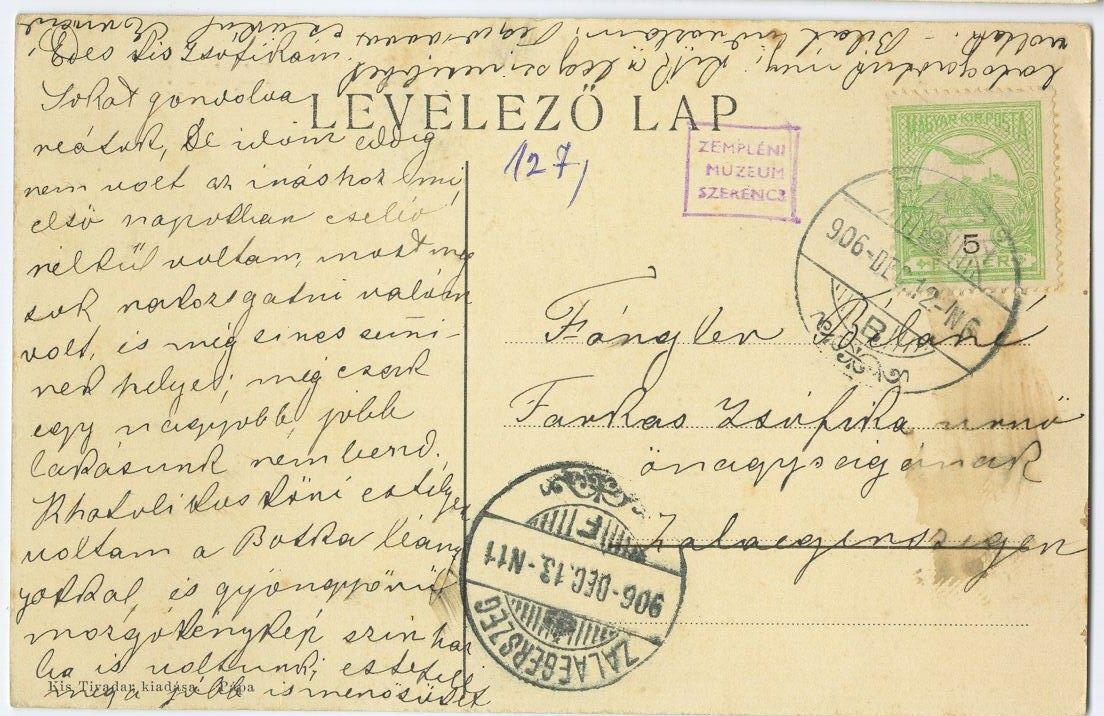 Édes kis Zsófikám,
Sokat gondolva
reátok, De időm eddig
nem volt az íráshoz mi
első napokban cseléd
nélkül voltam, most meg
sok rakozgatni valóm
volt, is még sincs semmi-
nek helye, még csak
egy nagyobb, jobb
lakásunk nem lesz.
Khatolikus Köri estélyen
voltam a Botka leány
yokkal, és gyöngyörű
mozgófénykép szinház
ba is voltunk, estefelé
meg a jobb ismerősöket
látogatjuk meg,
voltak. - Bélát
LEVELEZŐ LAP
127,
ZEMPLÉNI
MÚZEUM
SZERENCS
MAGYAR KIR. POSTA
5
906-DEC.12-N6
B
Fángler Béláné
Farkas Zsófika urnő
önagyságának
Zalaegerszegen
F
906-DEC.13-N11
ZALAEGERSZEG
Kis Tivadar kiadása. Pápa